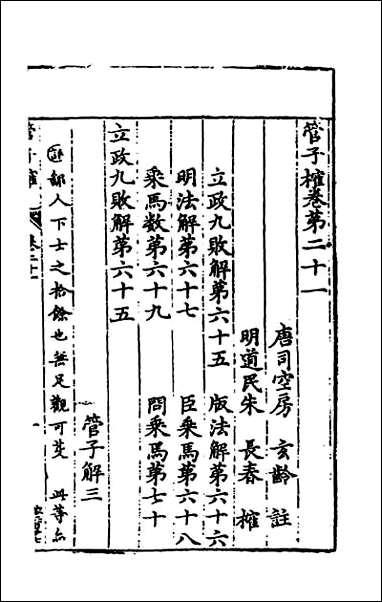 管子榷卷第二十一
唐司空房　玄齡　註
明道民朱　長春　榷
立政九敗解第六十五　版法解第六十六
明法解第六十七　臣乘馬第六十八
乘馬數第六十九　問乘馬第七十
管子解三
立政九敗解第六十五
部人下士之拾餘也無足觀可芟　此等
管子榷
卷二十一